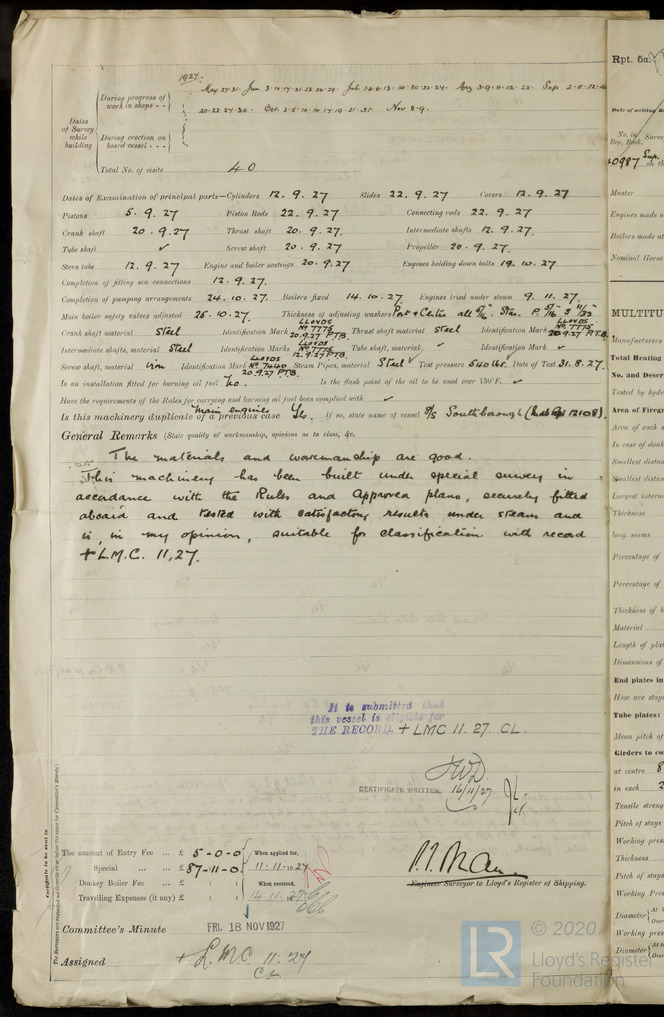 1927.
During progress of work in shops - - May 27.31. Jun 3.10.14.21.22.28.29. Jul Aug 3.9.11.12. Sep. 2.5.12
20.22.27.30. Oct. 3.5. 14.19.21.31. Nov 8.9.
Dates of Survey while building
During erection on board vessel - - -
Total No. of visits 40
Dates of Examination of principal parts—Cylinders 12.9.27 Slides 22.9.27 Covers 12.9.27
Pistons 5.9.27 Piston Rods 22.9.27 Connecting rods 22.9.27
Crank shaft 20.9.27 Thrust shaft 20.9.27. Intermediate shafts 12.9.27.
Tube shaft ✓ Screw shaft 20.9.27 Propeller 20.9.27.
Stern tube 12.9.27 Engine and boiler seatings 20.9.27 Engines holding down bolts 19.10.27
Completion of fitting sea connections 12.9.27.
Completion of pumping arrangements 24.10.27. Boilers fixed 14.10.27. Engines tried under steam 9.11.27.
Main boiler safety valves adjusted 25.10.27. Thickness of adjusting washers Port & Centre all
Crank shaft material Steel Identification Mark LLOYDS No 7775 20.9.27 P.T.B. Thrust shaft material Steel Identification Mark LLOYDS No 7775 20.9.27 P.T.B.
Intermediate shafts, material Steel Identification Marks LLOYDS No 7775 12.9.27 P.T.B. Tube shaft, material ✓ Identification Mark ✓
Screw shaft, material Iron Identification Mark LLOYDS No 7440 20.9.27 P.T.B. Steam Pipes, material Steel ✓ Test pressure 540 lbs. Date of Test 31.8.27.
Is an installation fitted for burning oil fuel No. Is the flash point of the oil to be used over 150°F. ✓
Have the requirements of the Rules for carrying and burning oil fuel been complied with ✓
Is this machinery duplicate of a previous case main engines Yes. If no, state name of vessel S/S Southborough (12108).
General Remarks (State quality of workmanship, opinions as to class, &c.
The materials and workmanship are good.
This machinery has been built under special survey in
accordance with the Rules and Approved plans, securely fitted
aboard and tested with satisfactory results under steam and
is, in my opinion, suitable for classification with record
+ L.M.C. 11,27.
It is submitted that
this vessel is eligible for
THE RECORD. + LMC 11.27. CL.
CERTIFICATE WRITTEN. 16/11/27
The amount of Entry Fee ... £ 5-0-0 When applied for,
Special ... ... £ 87-11-0 11-11-1927
Donkey Boiler Fee ... £ : : When received,
Travelling Expenses (if any) £ : : 14.11.1927
Engineer Surveyor to Lloyd's Register of Shipping.
Committee's Minute FRI. 18 NOV 1927
Assigned + L.M.C. 11.27
CL
Certificate to be sent to
Rpt. 5a.
Date of writing
No. in Reg. Book.
40987
Master
Engines made
Boilers made
Nominal Horse
MULTITU
Manufacturers
Total Heating
No. and Descr
Tested by hydr
Area of Firegr
Area of each
In case of donk
Smallest distan
Smallest distan
Largest intern
Thickness
long. seams
Percentage of
Percentage of
Thickness of b
Material
Length of plai
Dimensions of
End plates in
How are stays
Tube plates:
Mean pitch of
Girders to co
at centre 8
in each 2
Tensile streng
Pitch of stays
Working press
Thickness
Pitch of stays
Working Pres
Diameter
Working pres
Diameter
© 2020
LR
Lloyd's Register
Foundation